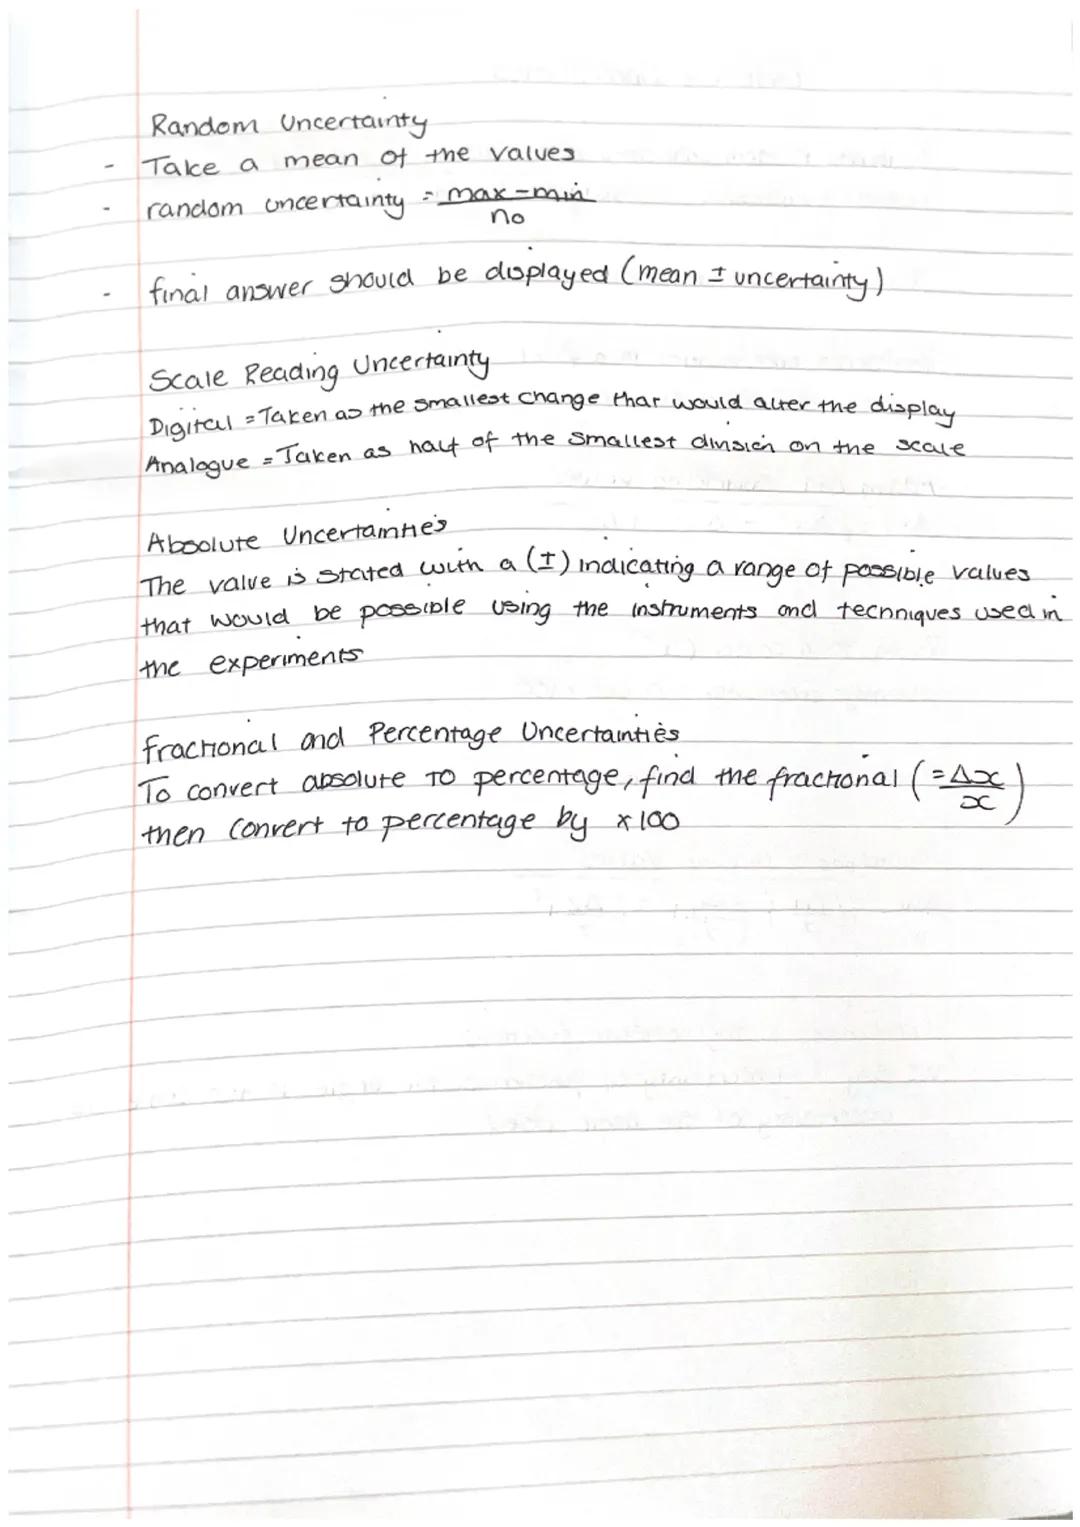 Random Uncertainty
- Take a mean of the values
- random uncertainty = max - min
no
- final answer should be displayed (mean ± uncertainty)
Scale Reading Uncertainty
Digital = Taken as the smallest change that would alter the display
Analogue = Taken as half of the smallest division on the scale
Absolute Uncertainties
The value is stated with a (±) indicating a range of possible values
that would be possible using the instruments and techniques used in
the experiments
fractional and Percentage Uncertainties
To convert absolute to percentage, find the fractional (= Δx/x)
then convert to percentage by ×100